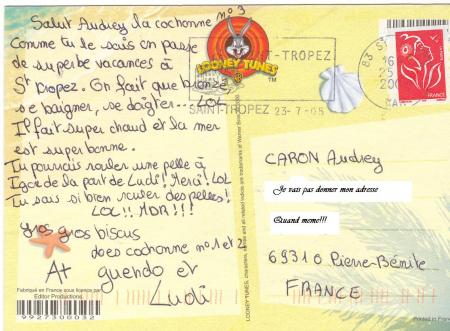 Salut Audrey la cochonne n°3
Comme tu le sais on passe
de superbe vacances à
St Tropez. On fait que bronzer
se baigner, se doigter... LOL
Il fait super chaud et la mer
est super bonne.
Tu pourrais rouler une pelle à
Igor de la part de Ludi! Merci! LOL
Tu sais si bien rouler des pelles!
LOL!! MDR!!!
gros gros biscus
des cochonne n°1 et 2
A+
guendo et
Ludi
Fabriqué en France sous licence par
Editor Productions
9927300032
LOONEY TUNES
TM
SAINT-TROPEZ
SAINT-TROPEZ 23-7-05
83 ST
16
25
200
VAR
FRANCE
CARON Audrey
Je vais pas donner mon adresse
Quand meme!!!
69310 Pierre-Bénite
FRANCE
Printed in